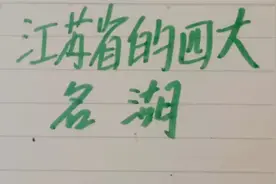 江苏省的四大
名湖